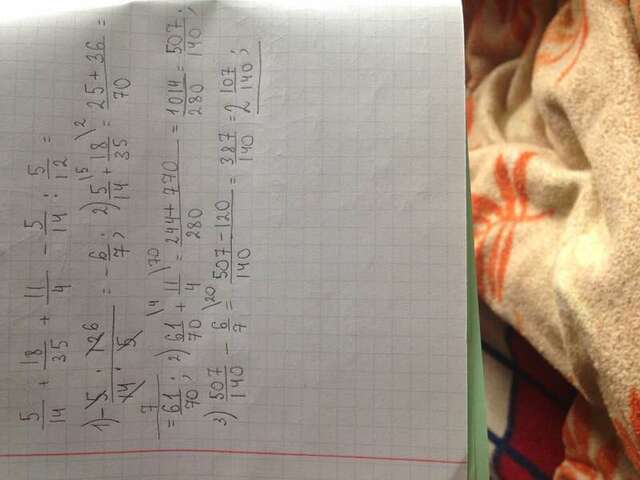 5/14 + 18/35 + 11/4 - 5/14 : 5/12 =
1) - 5/14 · 12 6/5 = - 6/7 ; 2) 5/14 \5 + 18/35 \2 = 25 + 36/70 =
7
= 61/70 ; 2) 61/70 \4 + 11/4 \70 = 244 + 770/280 = 1014/280 = 507/140 ;
3) 507/140 - 6/7 \20 = 507 - 120/140 = 387/140 = 2 107/140 ;